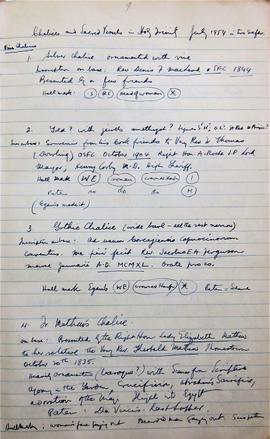 9
Chalices and Sacred Vessels in Holy Trinity July 1954 in two Safes
Nine Chalices
1. Silver Chalice ornamented with vine
Inscription on base: Rev Denis F Macleod OSFC 1844
Presented by a few friends
Hall mark: S RC head of woman X
2. Gold? with jewels amethyst?
Inscription: Souvenir from his Cork friends to Very Rev Fr Thomas
(Dowling) OSFC October 1904. Right Hon A. Roche J.P Lord
Mayor, Henry Corby M.D. High Sheriff.
Hall Mark WE woman crowned harp I
Paten do do do H
(Egan's made it)
3. Gothic Chalice (wide bowl - all the rest narrow)
Inscription above: Ad usum Corcagiensis Capuccinorum
conventus. me fieri fecit Rev. Jacobus E.A Ferguson
mense Januarii A.D. MCMXL. Orate pro eo.
Hall mark Egan's WE crowned Harp X Paten - Same
4. Fr Mathew's Chalice.
on base: Presented by the Right Hon Lady Elizabeth Mathew
to her relative the Very Rev. Theobald Mathew Thomastown
October 20th 1835.
Heavily ornamented (baroque?) with Scenes from Scripture
Agony in the Garden, Crucifixion, Abraham's Sacrifice,
adoration of the Magi Flight into Egypt
Paten: Da Vinci's Last Supper.
Hallmarks: woman's face facing out